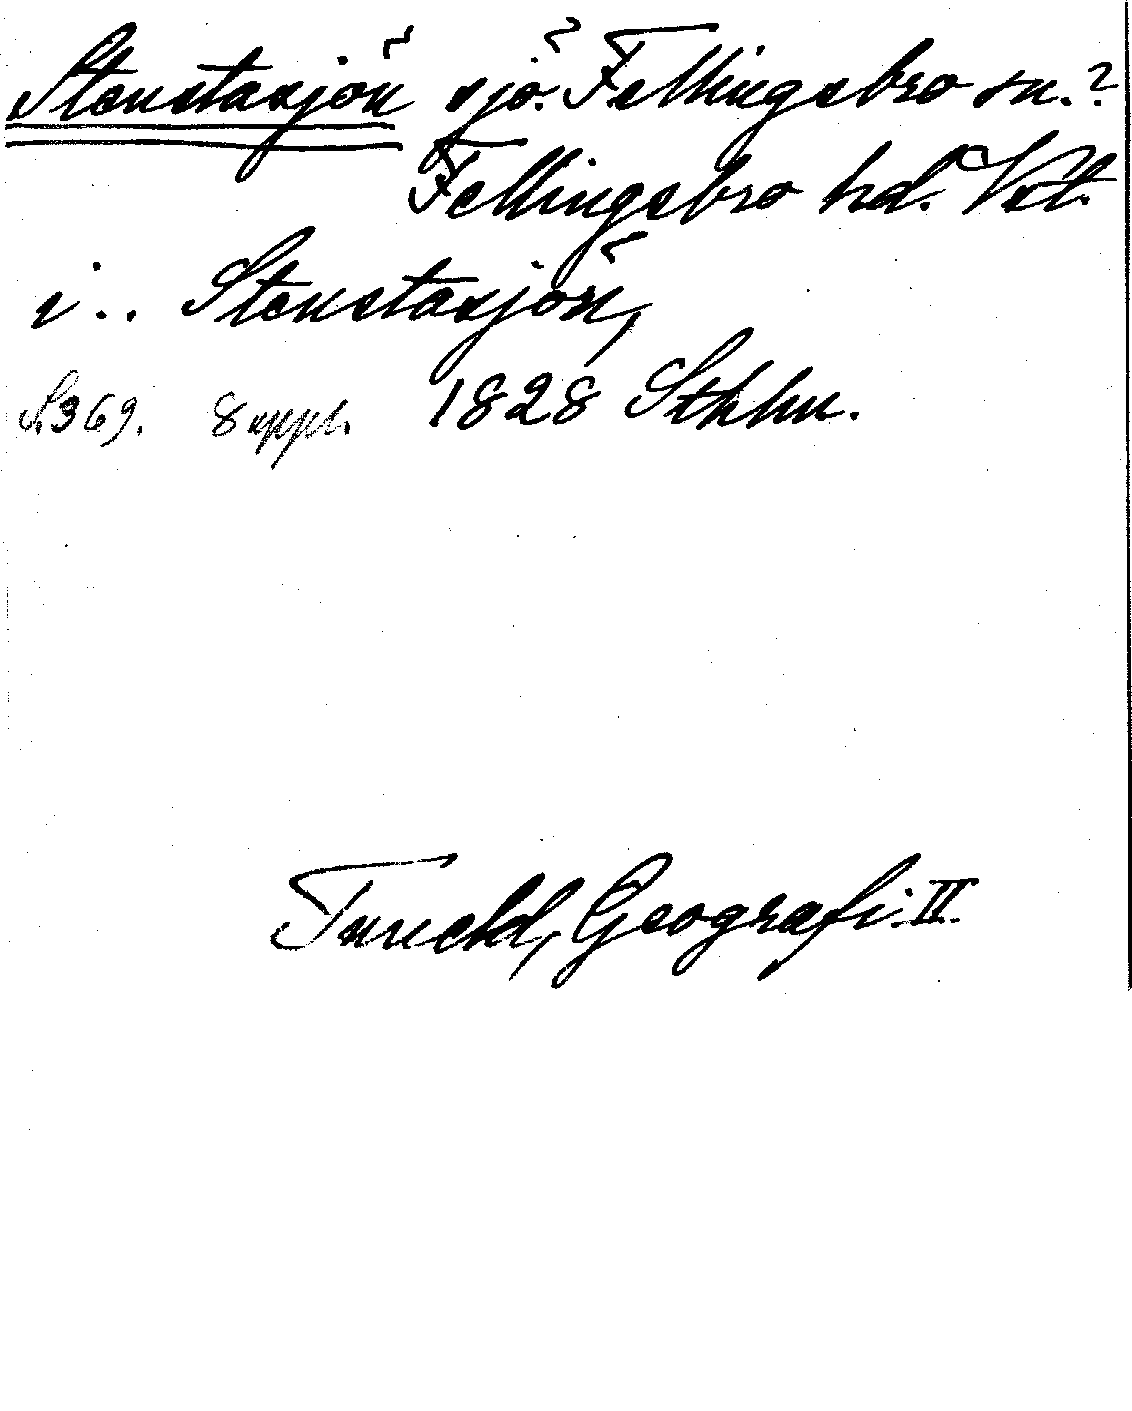 Stenstasjön sjö. Fellingsbro sn.?
Fellingsbro hd. Vst.
i .. Stenstasjön,
S.369. 8 uppl. 1828 Sthlm.
Tuneld, Geografi. II.